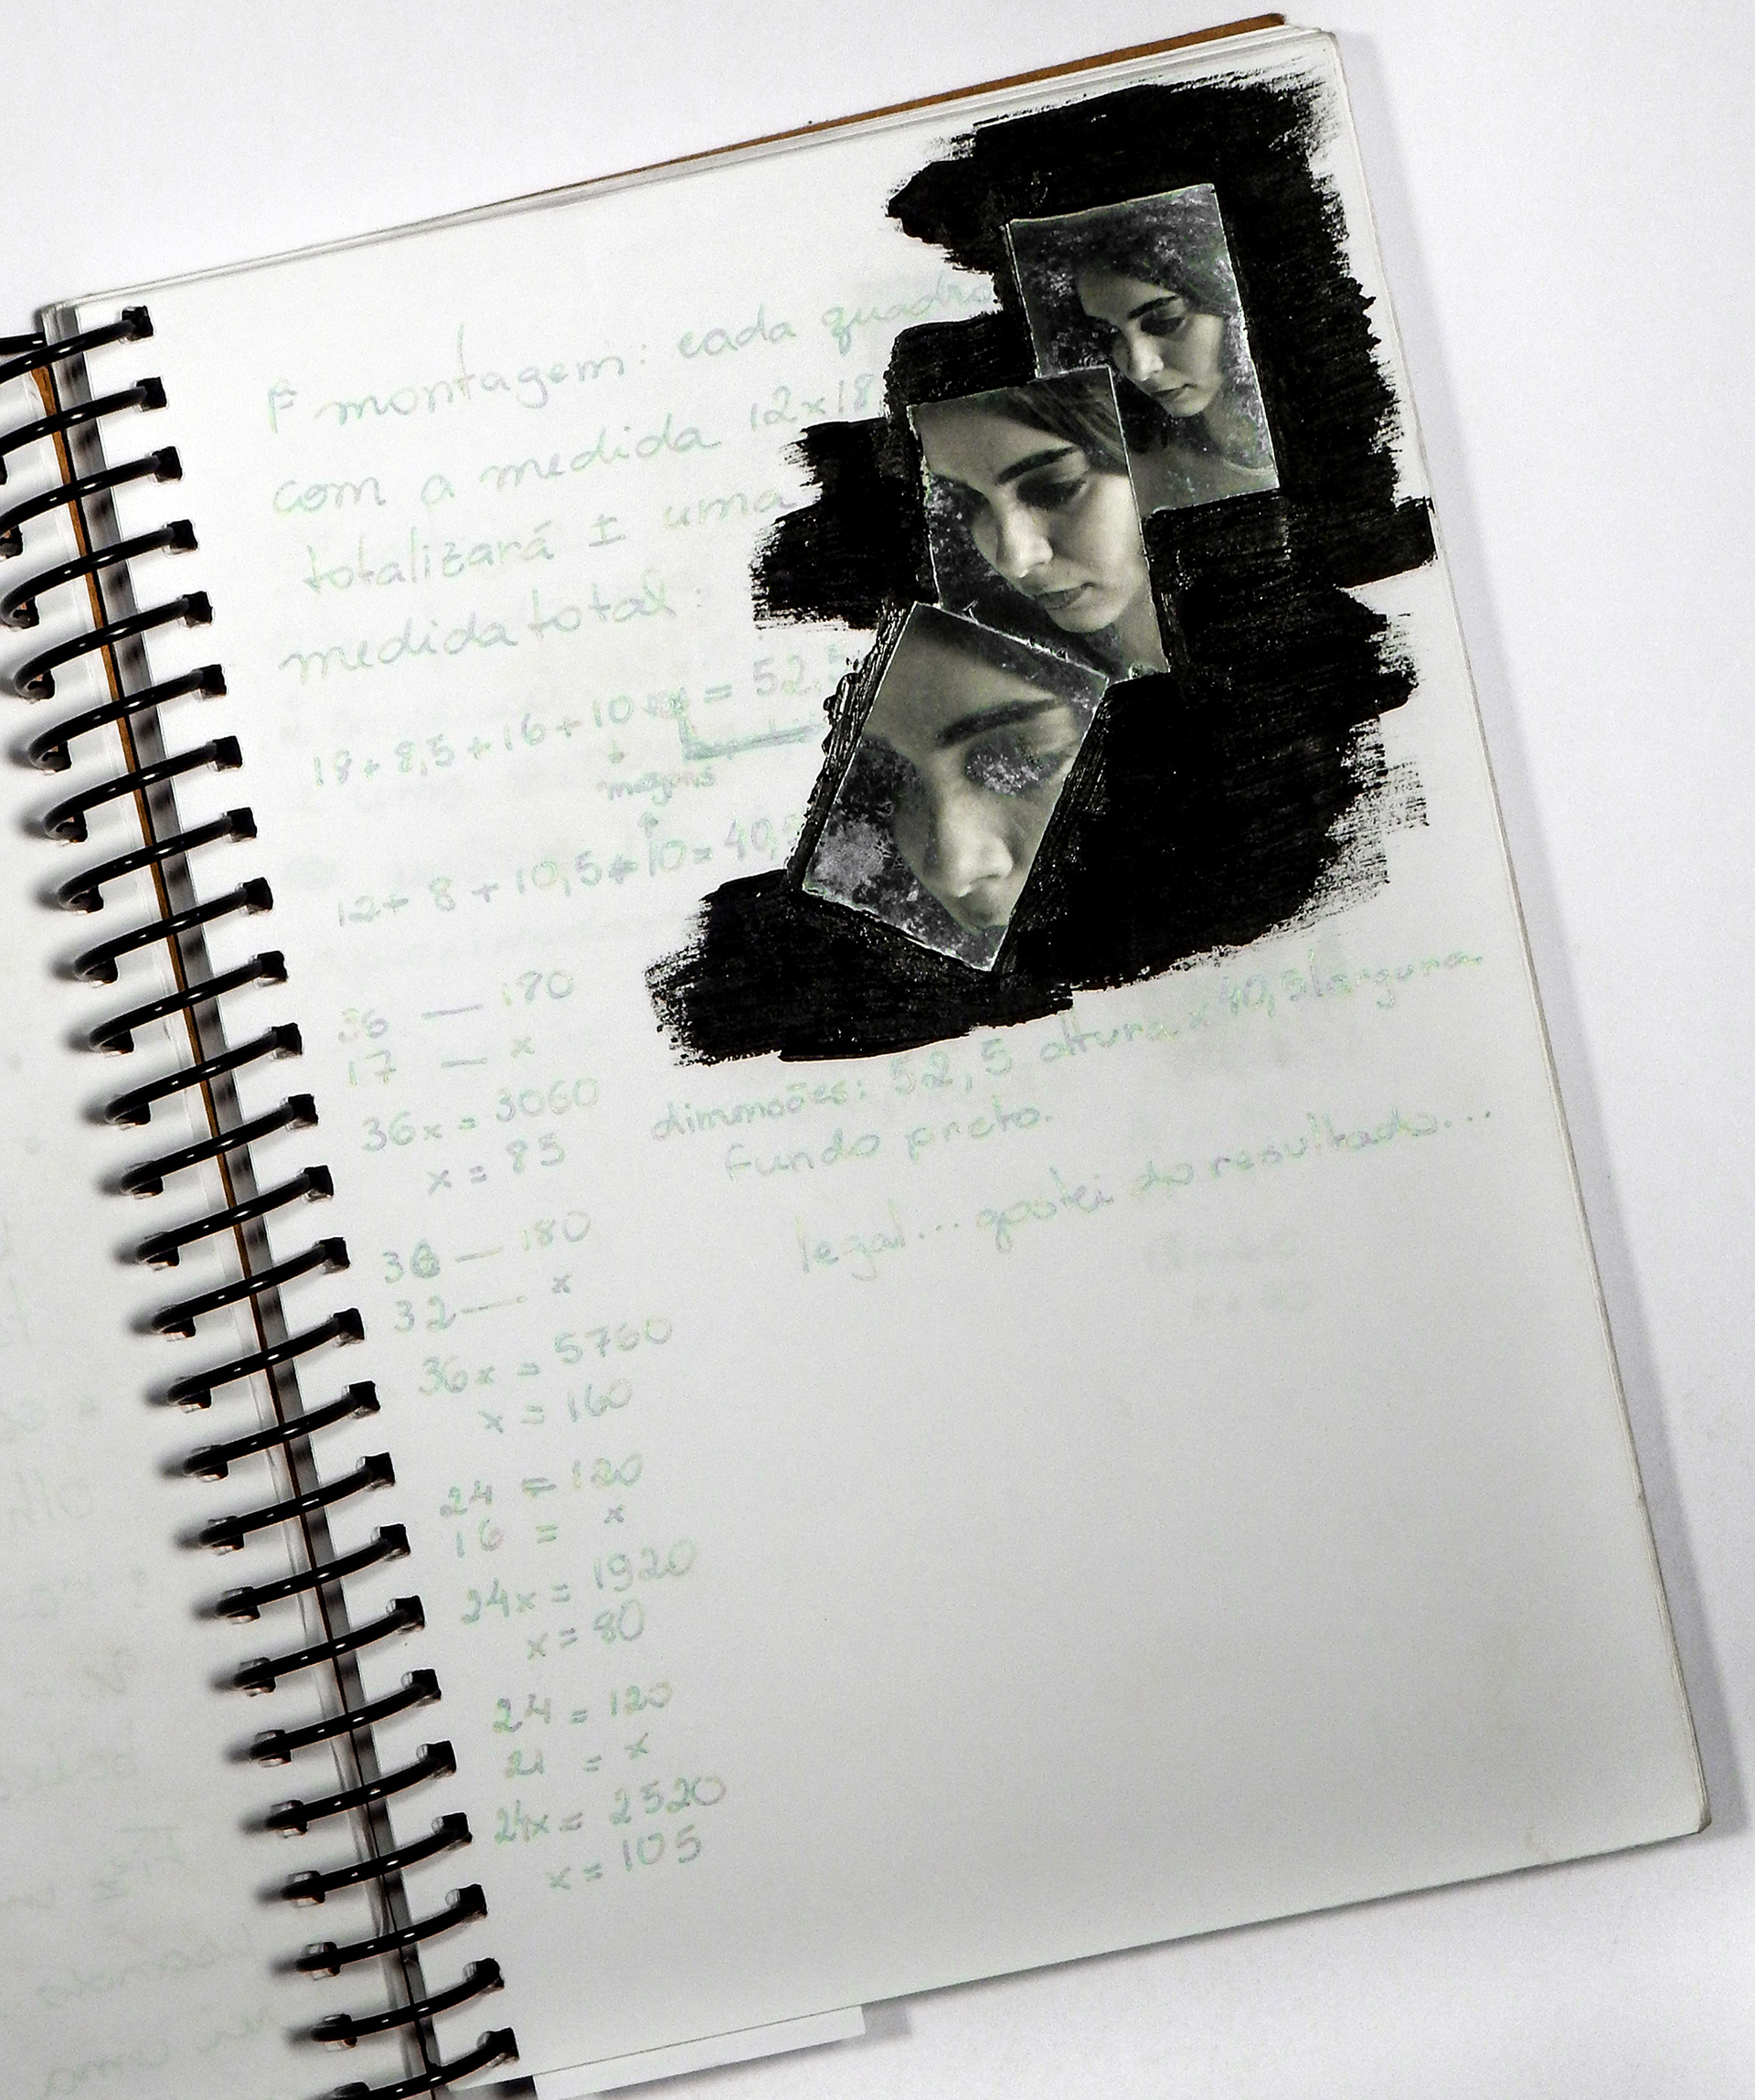 montagem: cada quadro
com a medida 12x18
totalizará ± uma
medida total:
18+8,5+16+10 = 52,5
margens
12+8+10,5+10=40,5
36 — 180
17 — x
36x = 3060
x = 85
36 — 180
32 — x
36x = 5760
x = 160
24 = 120
16 = x
24x = 1920
x = 80
24 = 120
21 = x
24x = 2520
x = 105
dimensões: 52,5 altura x 40,5 largura.
fundo preto.
legal... gostei do resultado...